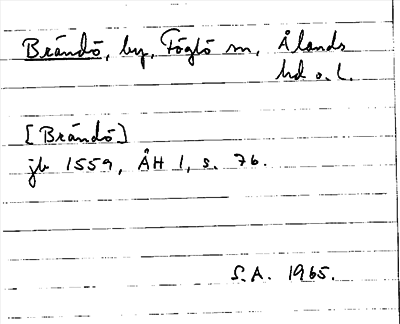 Brändö, by, Föglö sn, Ålands
hd o. l.
[Brändö]
jb 1559, ÅH 1, s. 76.
S.A. 1965.